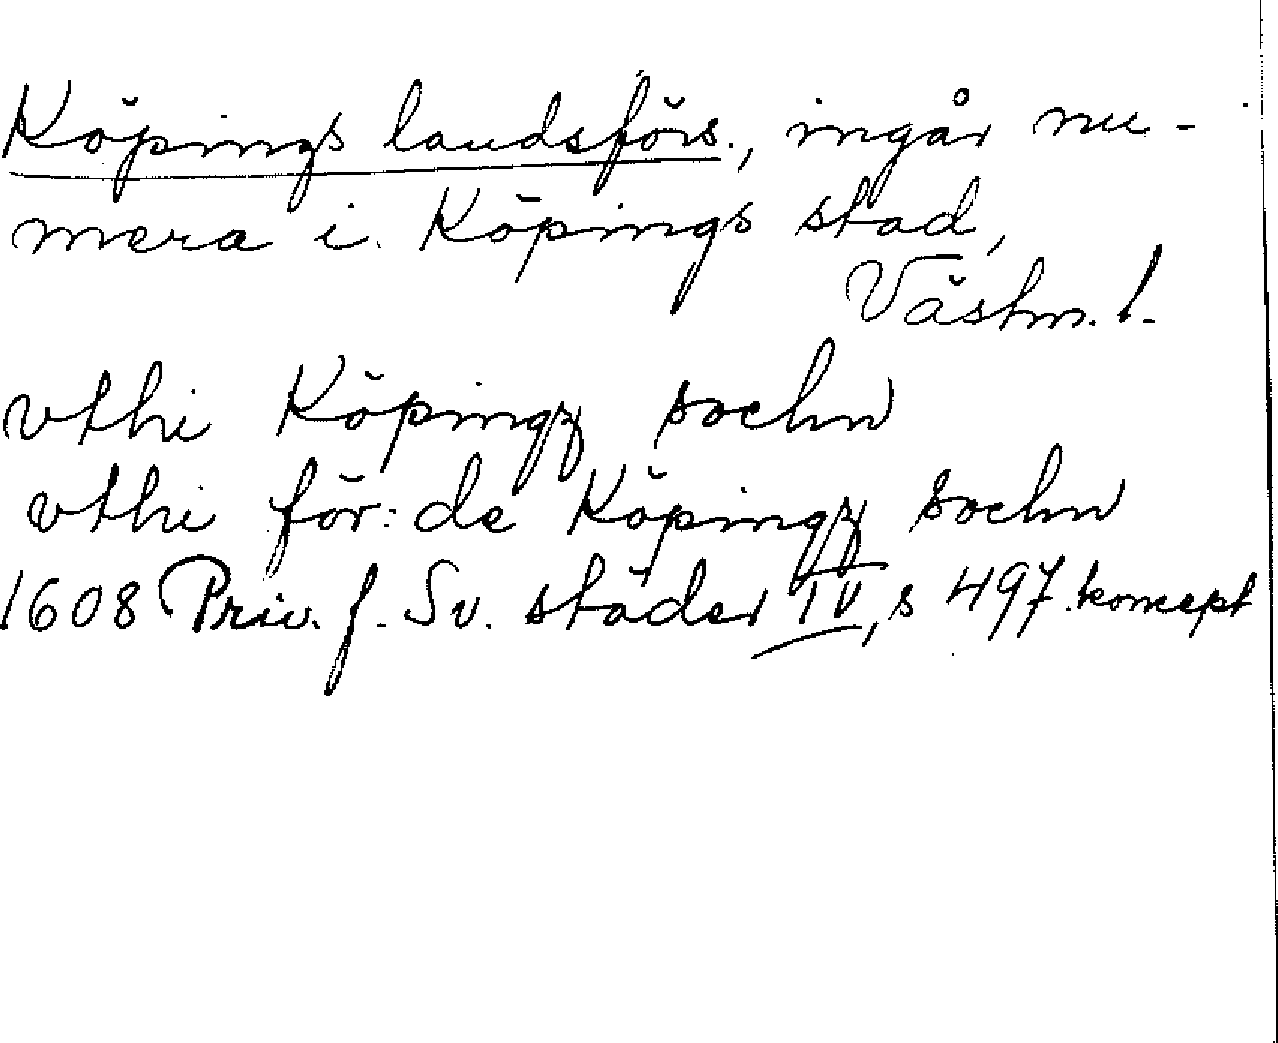 Köpings landsförs., ingår nu-
mera i Köpings stad,
Västm. l.
vthi Köpingz sochn
vthi för:de Köpingz sochn
1608 Priv. f. Sv. städer IV, s 497. koncept